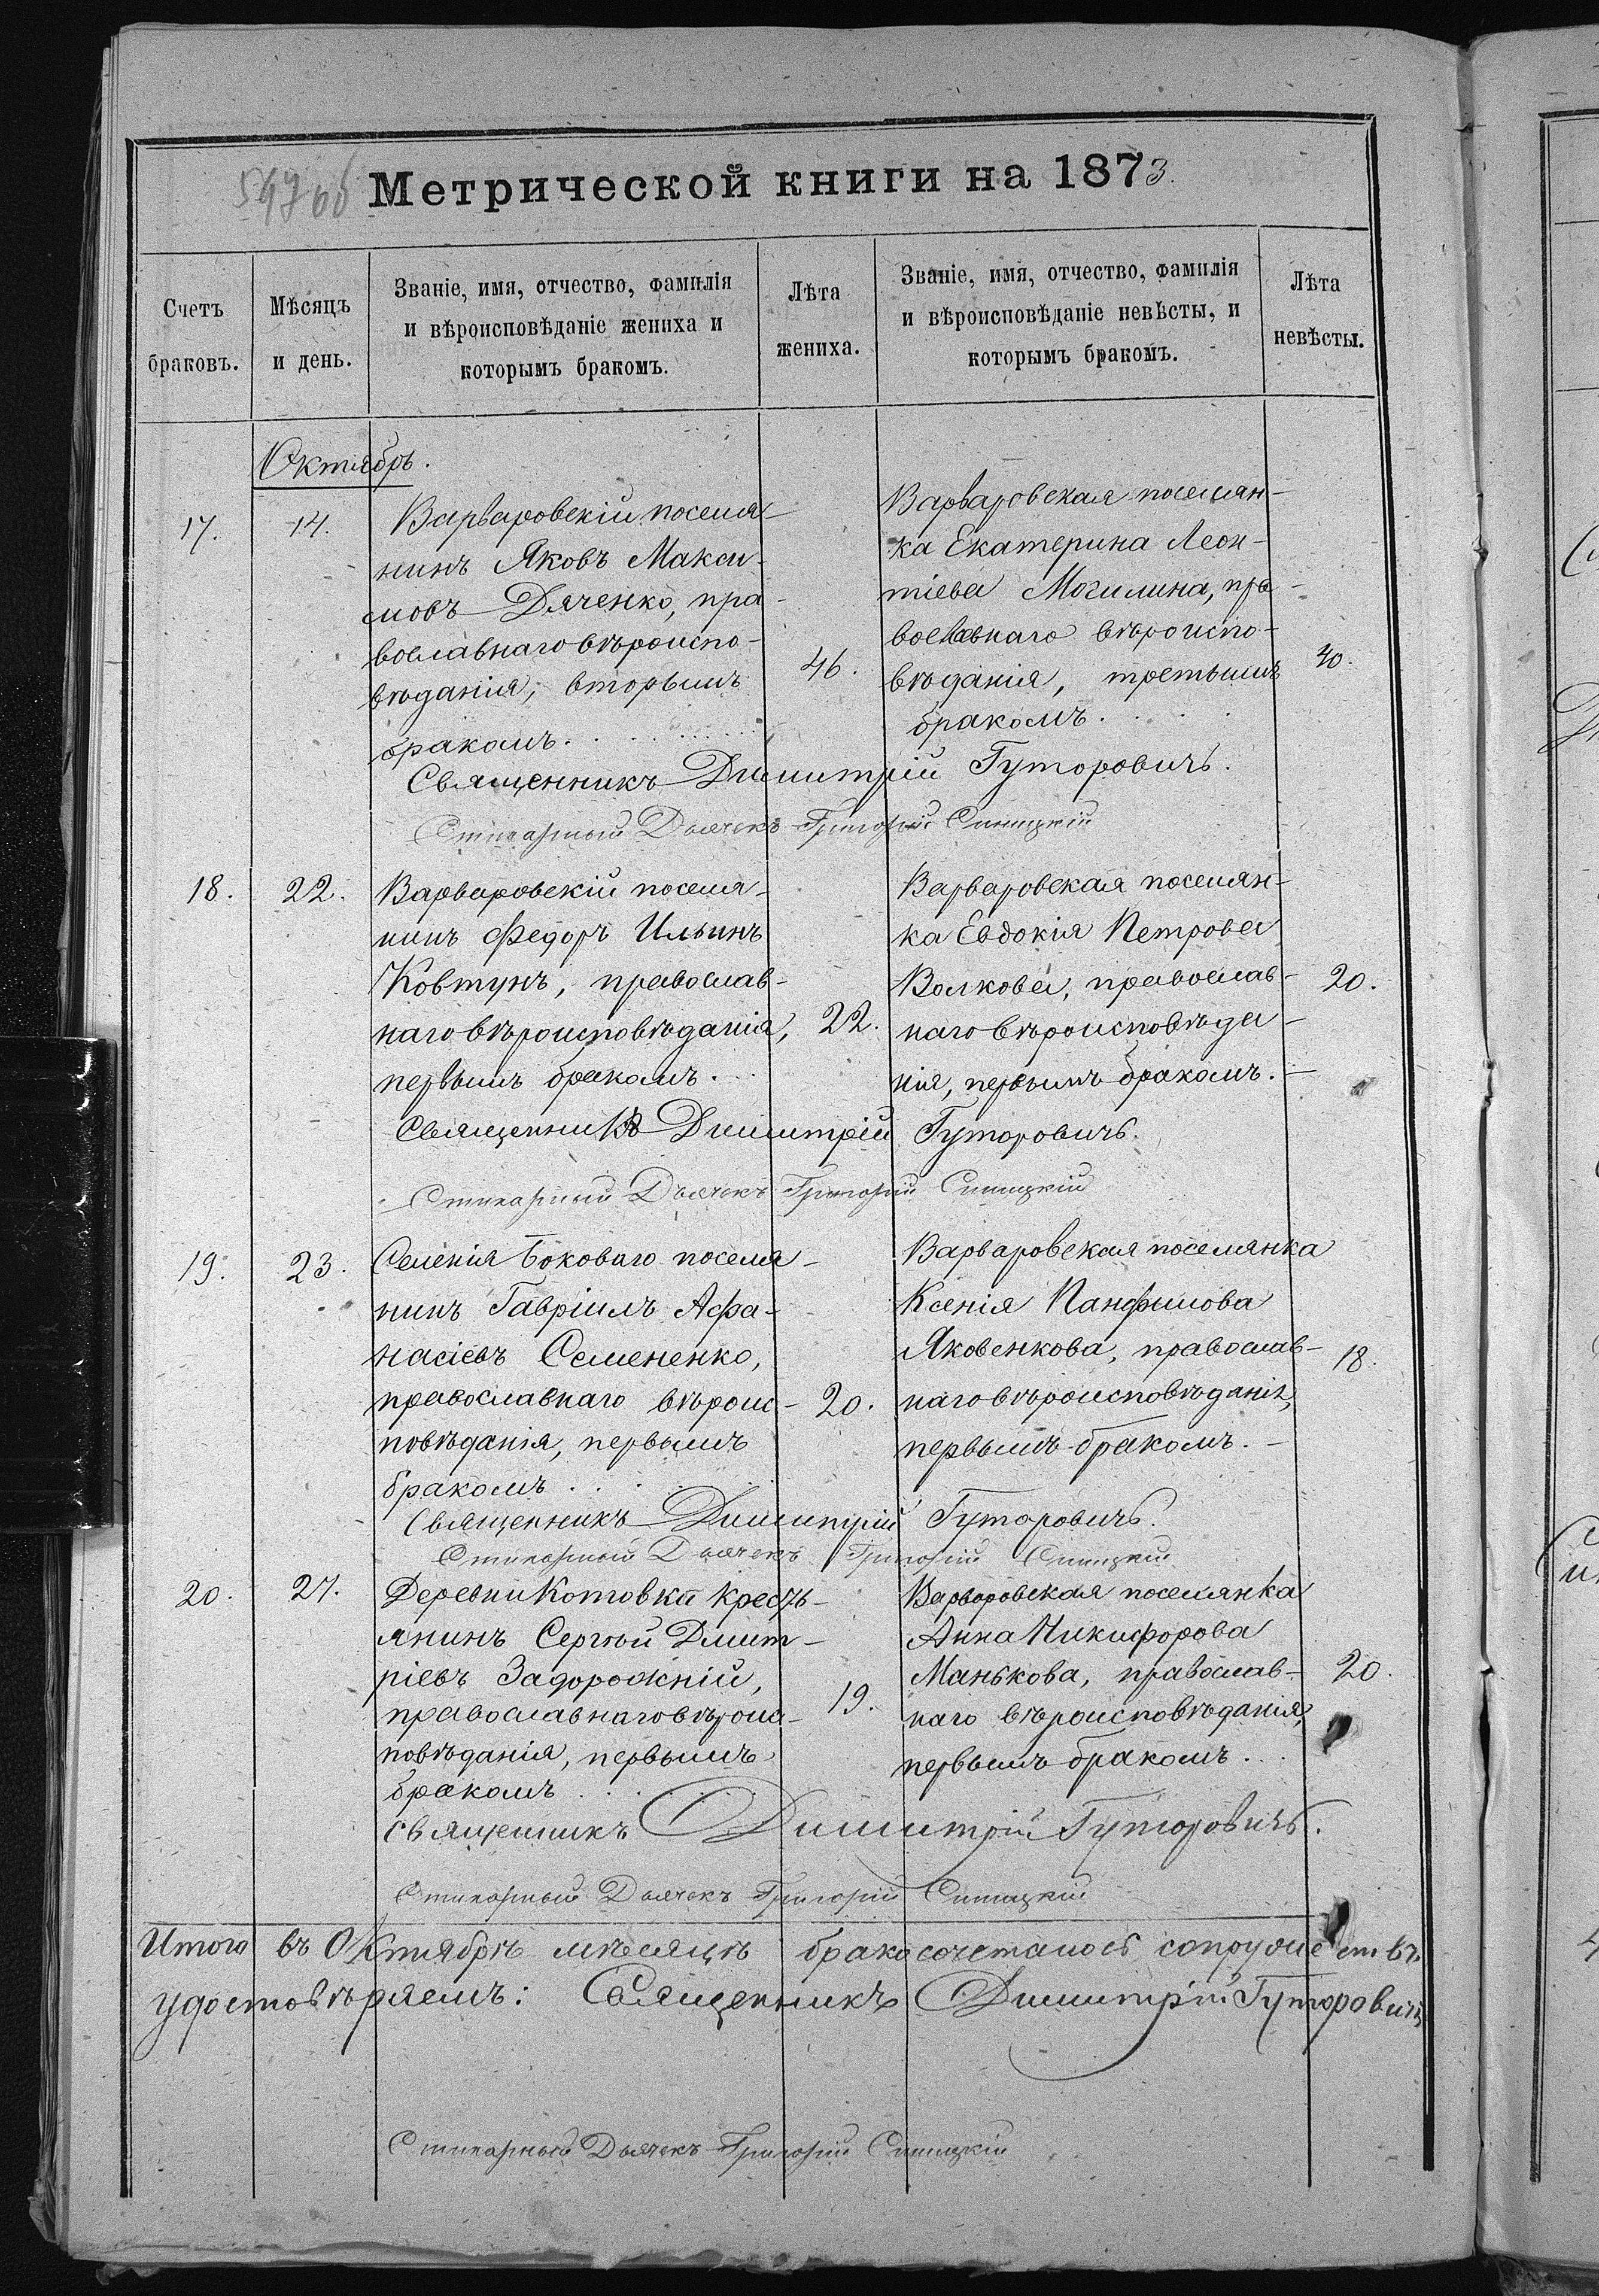 Метрической книги на 1873.
Счетъ браковъ.
Мѣсяцъ и день.
Званіе, имя, отчество, фамилія
и вѣроисповѣданіе жениха и
которымъ бракомъ.
Лѣта жениха.
Званіе, имя, отчество, фамилія
и вѣроисповѣданіе невѣсты, и
которымъ бракомъ.
Лѣта невѣсты.
Октябрь.
17.
14.
Варваровскій поселя-
нинъ Яковъ Макси-
мовъ Дяченко, пра-
вославнаго вѣроиспо-
вѣданія, вторымъ
бракомъ.
46.
Варваровская поселян-
ка Екатерина Леон-
тіева Могилина, пра-
вославнаго вѣроиспо-
вѣданія, третьимъ
бракомъ.
40.
Священникъ Димитрій Гуторовичъ.
Стихарный Дьячекъ Григорій Синицкій
18.
22.
Варваровскій поселя-
нинъ Федоръ Ильинъ
Ковтунъ, православ-
наго вѣроисповѣданія,
первымъ бракомъ.
22.
Варваровская поселян-
ка Евдокія Петрова
Волкова, православ-
наго вѣроисповѣда-
нія, первымъ бракомъ.
20.
Священникъ Димитрій Гуторовичъ.
Стихарный Дьячекъ Григорій Синицкій
19.
23.
Селенія Боковаго поселя-
нинъ Гавріилъ Афа-
насіевъ Семененко,
православнаго вѣроис-
повѣданія, первымъ
бракомъ.
20.
Варваровская поселянка
Ксенія Панфилова
Яковенкова, православ-
наго вѣроисповѣданія,
первымъ бракомъ.
18.
Священникъ Димитрій Гуторовичъ.
Стихарный Дьячекъ Григорій Синицкій
20.
27.
Деревни Котовки кресть-
янинъ Сергѣй Дмит-
ріевъ Задорожній,
православнаго вѣроис-
повѣданія, первымъ
бракомъ.
19.
Варваровская поселянка
Анна Никифорова
Манькова, православ-
наго вѣроисповѣданія,
первымъ бракомъ.
20.
Священникъ Димитрій Гуторовичъ.
Стихарный Дьячекъ Григорій Синицкій
Итого въ Октябрѣ мѣсяцѣ бракосочеталось
удостовѣряемъ: Священникъ Димитрій Гуторовичъ
Стихарный Дьячекъ Григорій Синицкій